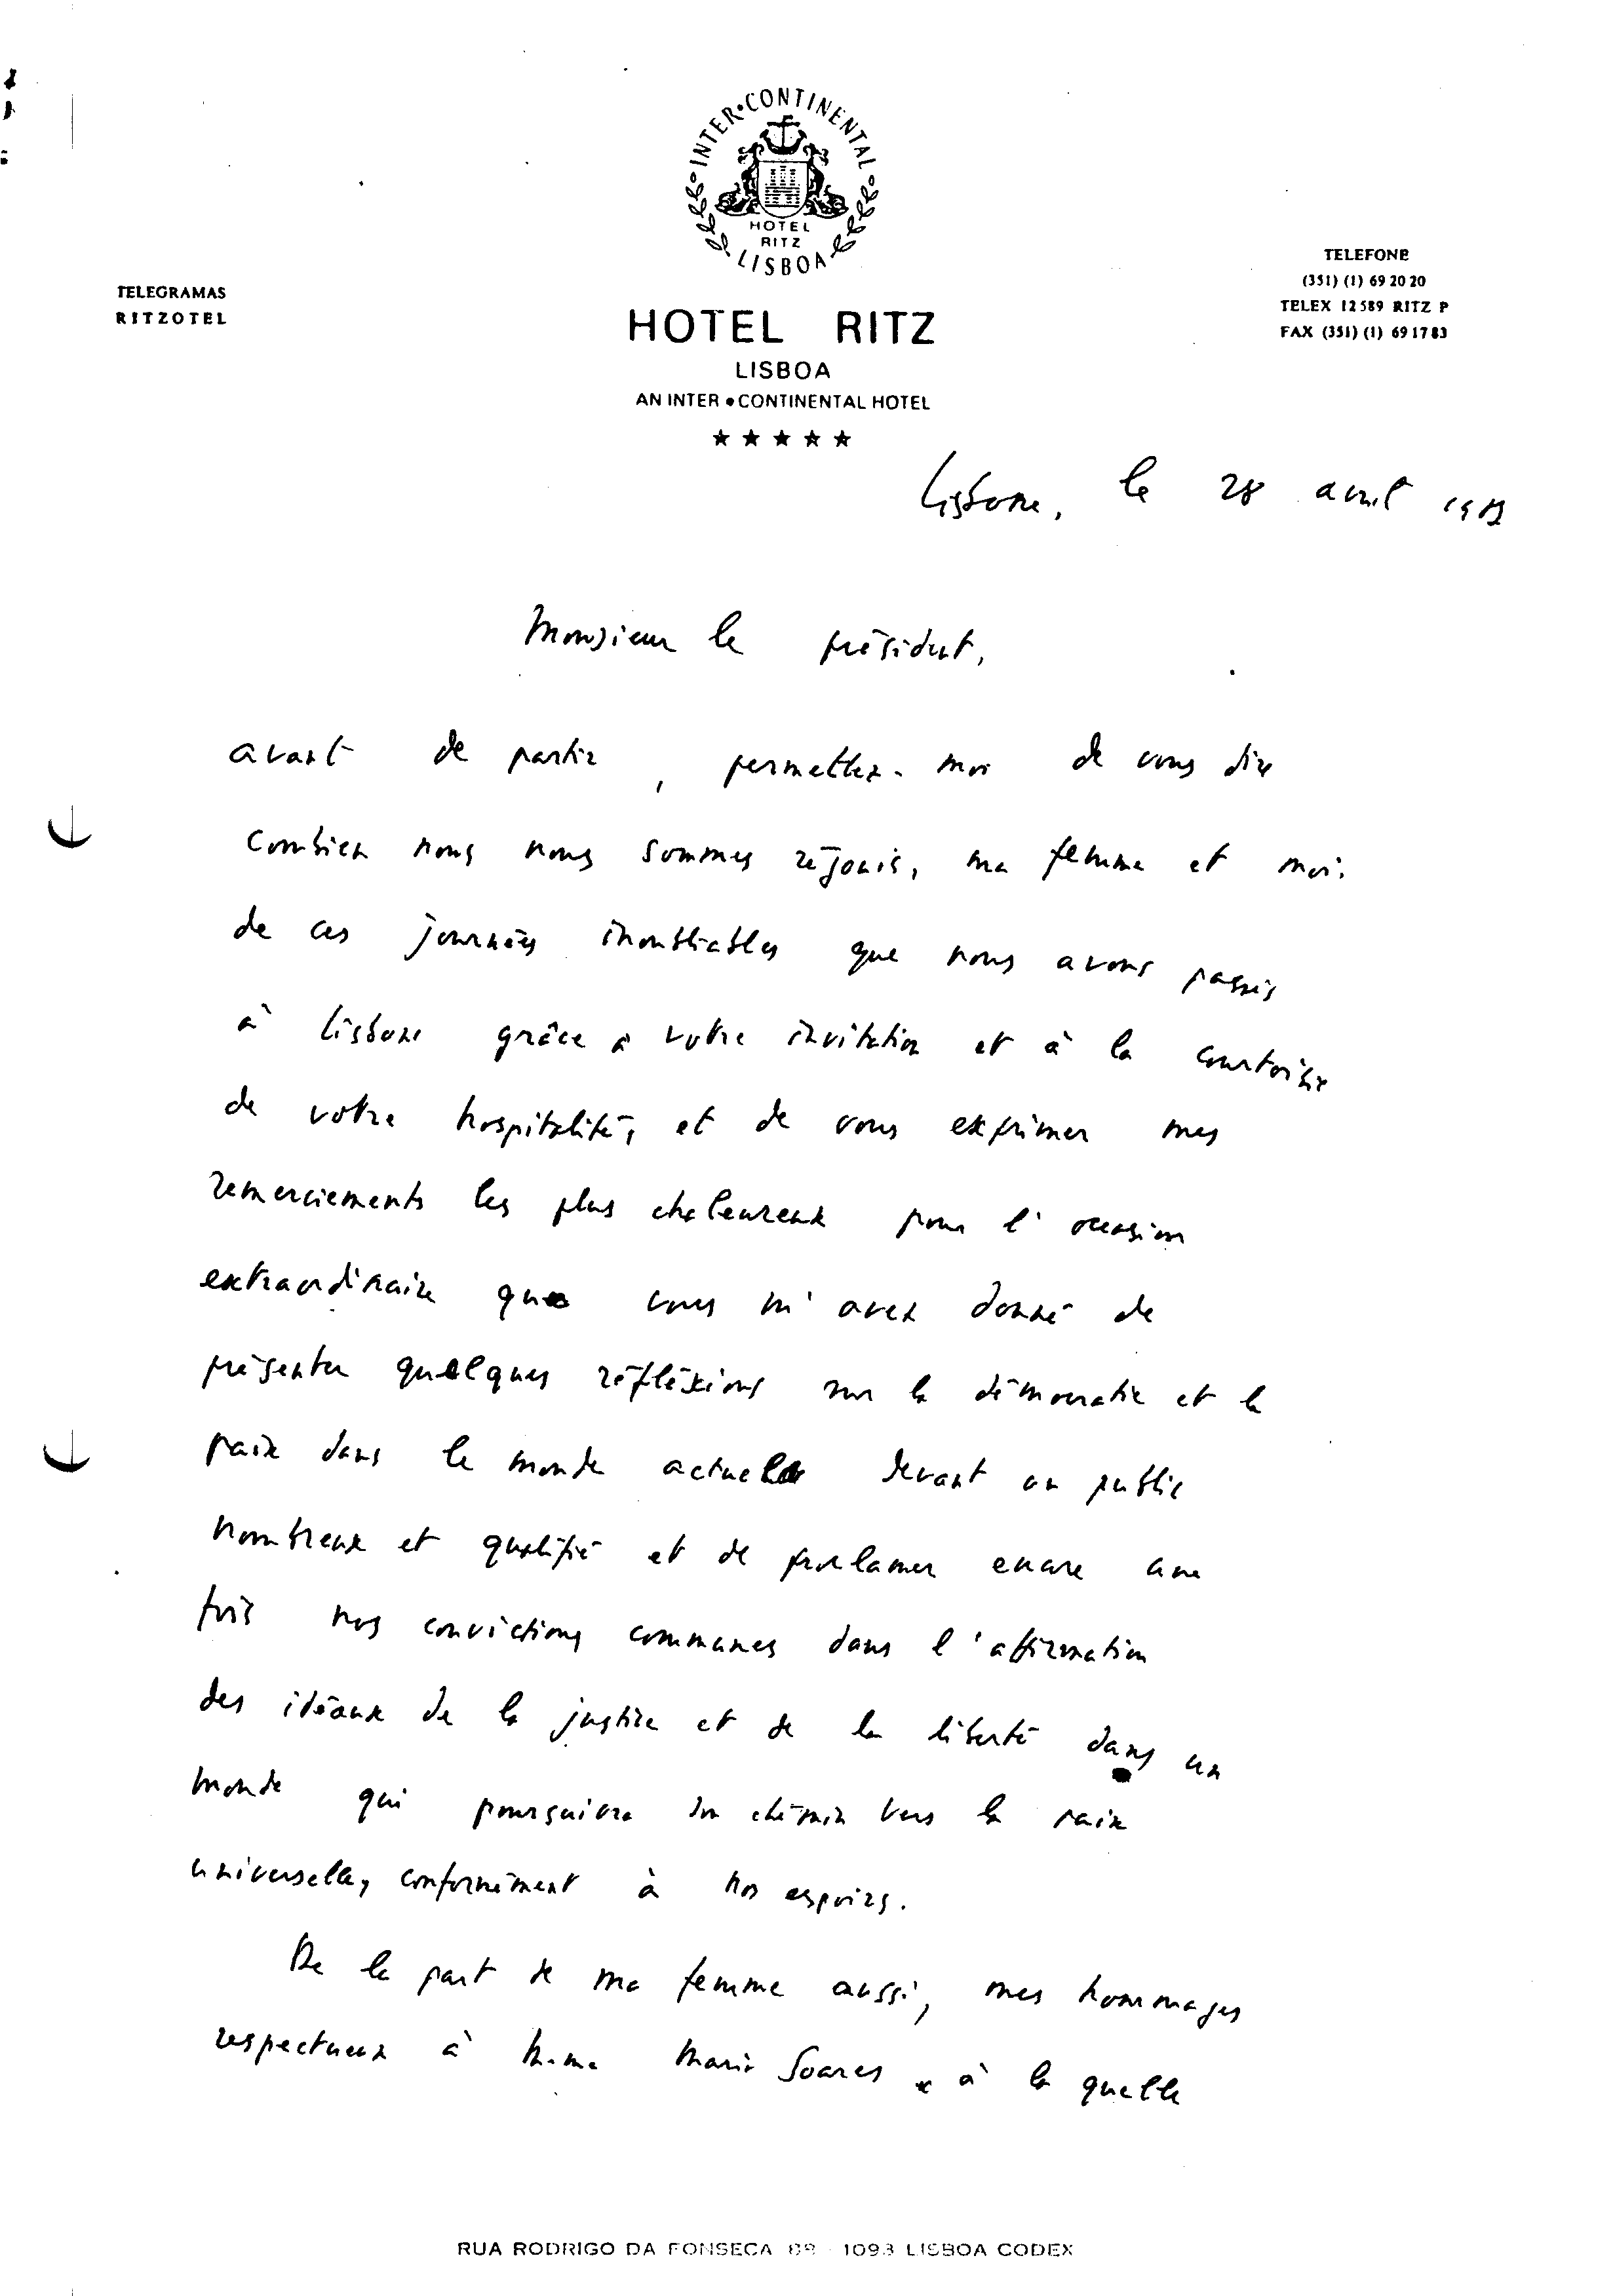 INTER•CONTINENTAL
HOTEL
RITZ
LISBOA
TELEGRAMAS
RITZOTEL
HOTEL RITZ
LISBOA
AN INTER•CONTINENTAL HOTEL
★★★★★
TELEFONE
(351) (1) 69 20 20
TELEX 12589 RITZ P
FAX (351) (1) 69 17 83
Lisbone, le 28 avril
Monsieur le président,
avant de partir, permettez-moi de vous dire
combien nous nous sommes réjouis, ma femme et moi,
de ces journées inoubliables que nous avons passés
à Lisbone grâce à votre invitation et à la courtoisie
de votre hospitalité, et de vous exprimer mes
remerciements les plus chaleureux pour l'occasion
extraordinaire que vous m'avez donné de
présenter quelques réfléxions sur la démocratie et la
paix dans le monde actuel devant un public
nombreux et qualifié et de proclamer encore une
fois nos convictions communes dans l'affirmation
des idéaux de la justice et de la liberté dans un
monde qui poursuivra son chémin vers la paix
universelle, conformément à nos espoirs.
De la part de ma femme aussi, mes hommages
respectueux à M.me Maria Soares à la quelle
RUA RODRIGO DA FONSECA 88 - 1093 LISBOA CODEX